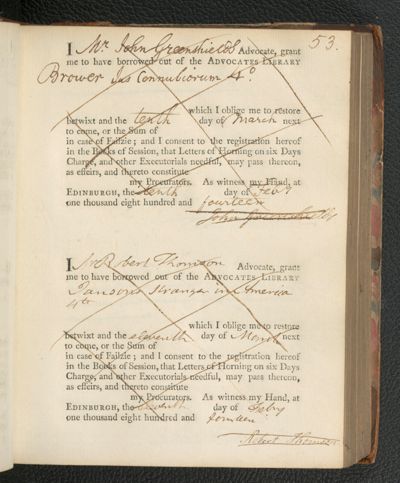 53.
I Mr. John Greenshields Advocate, grant
me to have borrowed out of the ADVOCATES LIBRARY
Brower Jus Connubiorum 4o.
which I oblige me to restore
betwixt and the tenth day of March next
to come, or the Sum of
in case of Failzie; and I consent to the registration hereof
in the Books of Session, that Letters of Horning on six Days
Charge, and other Executorials needful, may pass thereon,
as effeirs, and thereto constitute
my Procurators. As witness my Hand, at
EDINBURGH, the tenth day of Feby
one thousand eight hundred and fourteen
John Greenshields
I Mr Robert Thomson Advocate, grant
me to have borrowed out of the ADVOCATES LIBRARY
Jansons Stranger in America
4to
which I oblige me to restore
betwixt and the eleventh day of March next
to come, or the Sum of
in case of Failzie; and I consent to the registration hereof
in the Books of Session, that Letters of Horning on six Days
Charge, and other Executorials needful, may pass thereon,
as effeirs, and thereto constitute
my Procurators. As witness my Hand, at
EDINBURGH, the eleventh day of Feby
one thousand eight hundred and fourteen
Robert Thomson